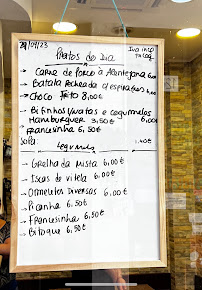 29/09/23
Pratos do Dia
Iva inc
→ Carne de porco à Alentejana 6,00
→ Batata recheada c/espira
→ Choco Frito 8,00€
→ Bifinhos c/natas e cogumelos
Hamburguer 3,50€ 6,00€
→ Francesinha 6,50€
Sopa: Legumes 1,40€
→ Grelhada mista 6,00€
→ Iscas de vitela 6,00€
→ Omeletes Diversas 6,00€
→ Picanha 6,50€
→ Francesinha 6,50€
→ Bitoque 6,50€